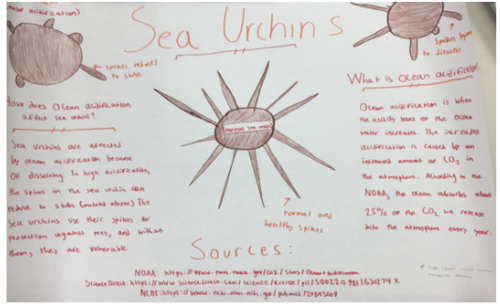 Sea Urchins
spikes reduced
to stubs
spikes begin
to dissolve
How does Ocean acidification
affect sea urchins?
Sea urchins are affected
by ocean acidification because
of dissolving. In high acidification,
the spines on the sea urchin can
reduce to stubs
Sea urchins use their spikes for
protection against prey, and without
them, they are vulnerable.
normal sea urchin
normal and
healthy spikes
What is Ocean acidification?
Ocean acidification is when
the acidity levels on the ocean
water increases. The increased
acidification is caused by an
increased amount of CO2 in
the atmosphere. According to the
NOAA, the ocean absorbs about
25% of the CO2 we release
into the atmosphere every year.
Sources:
NOAA: https://www.
ScienceDirect: https://www.sciencedirect.com/science/article/pii/
NCBI: https://www.ncbi.nlm.nih.gov/pubmed/